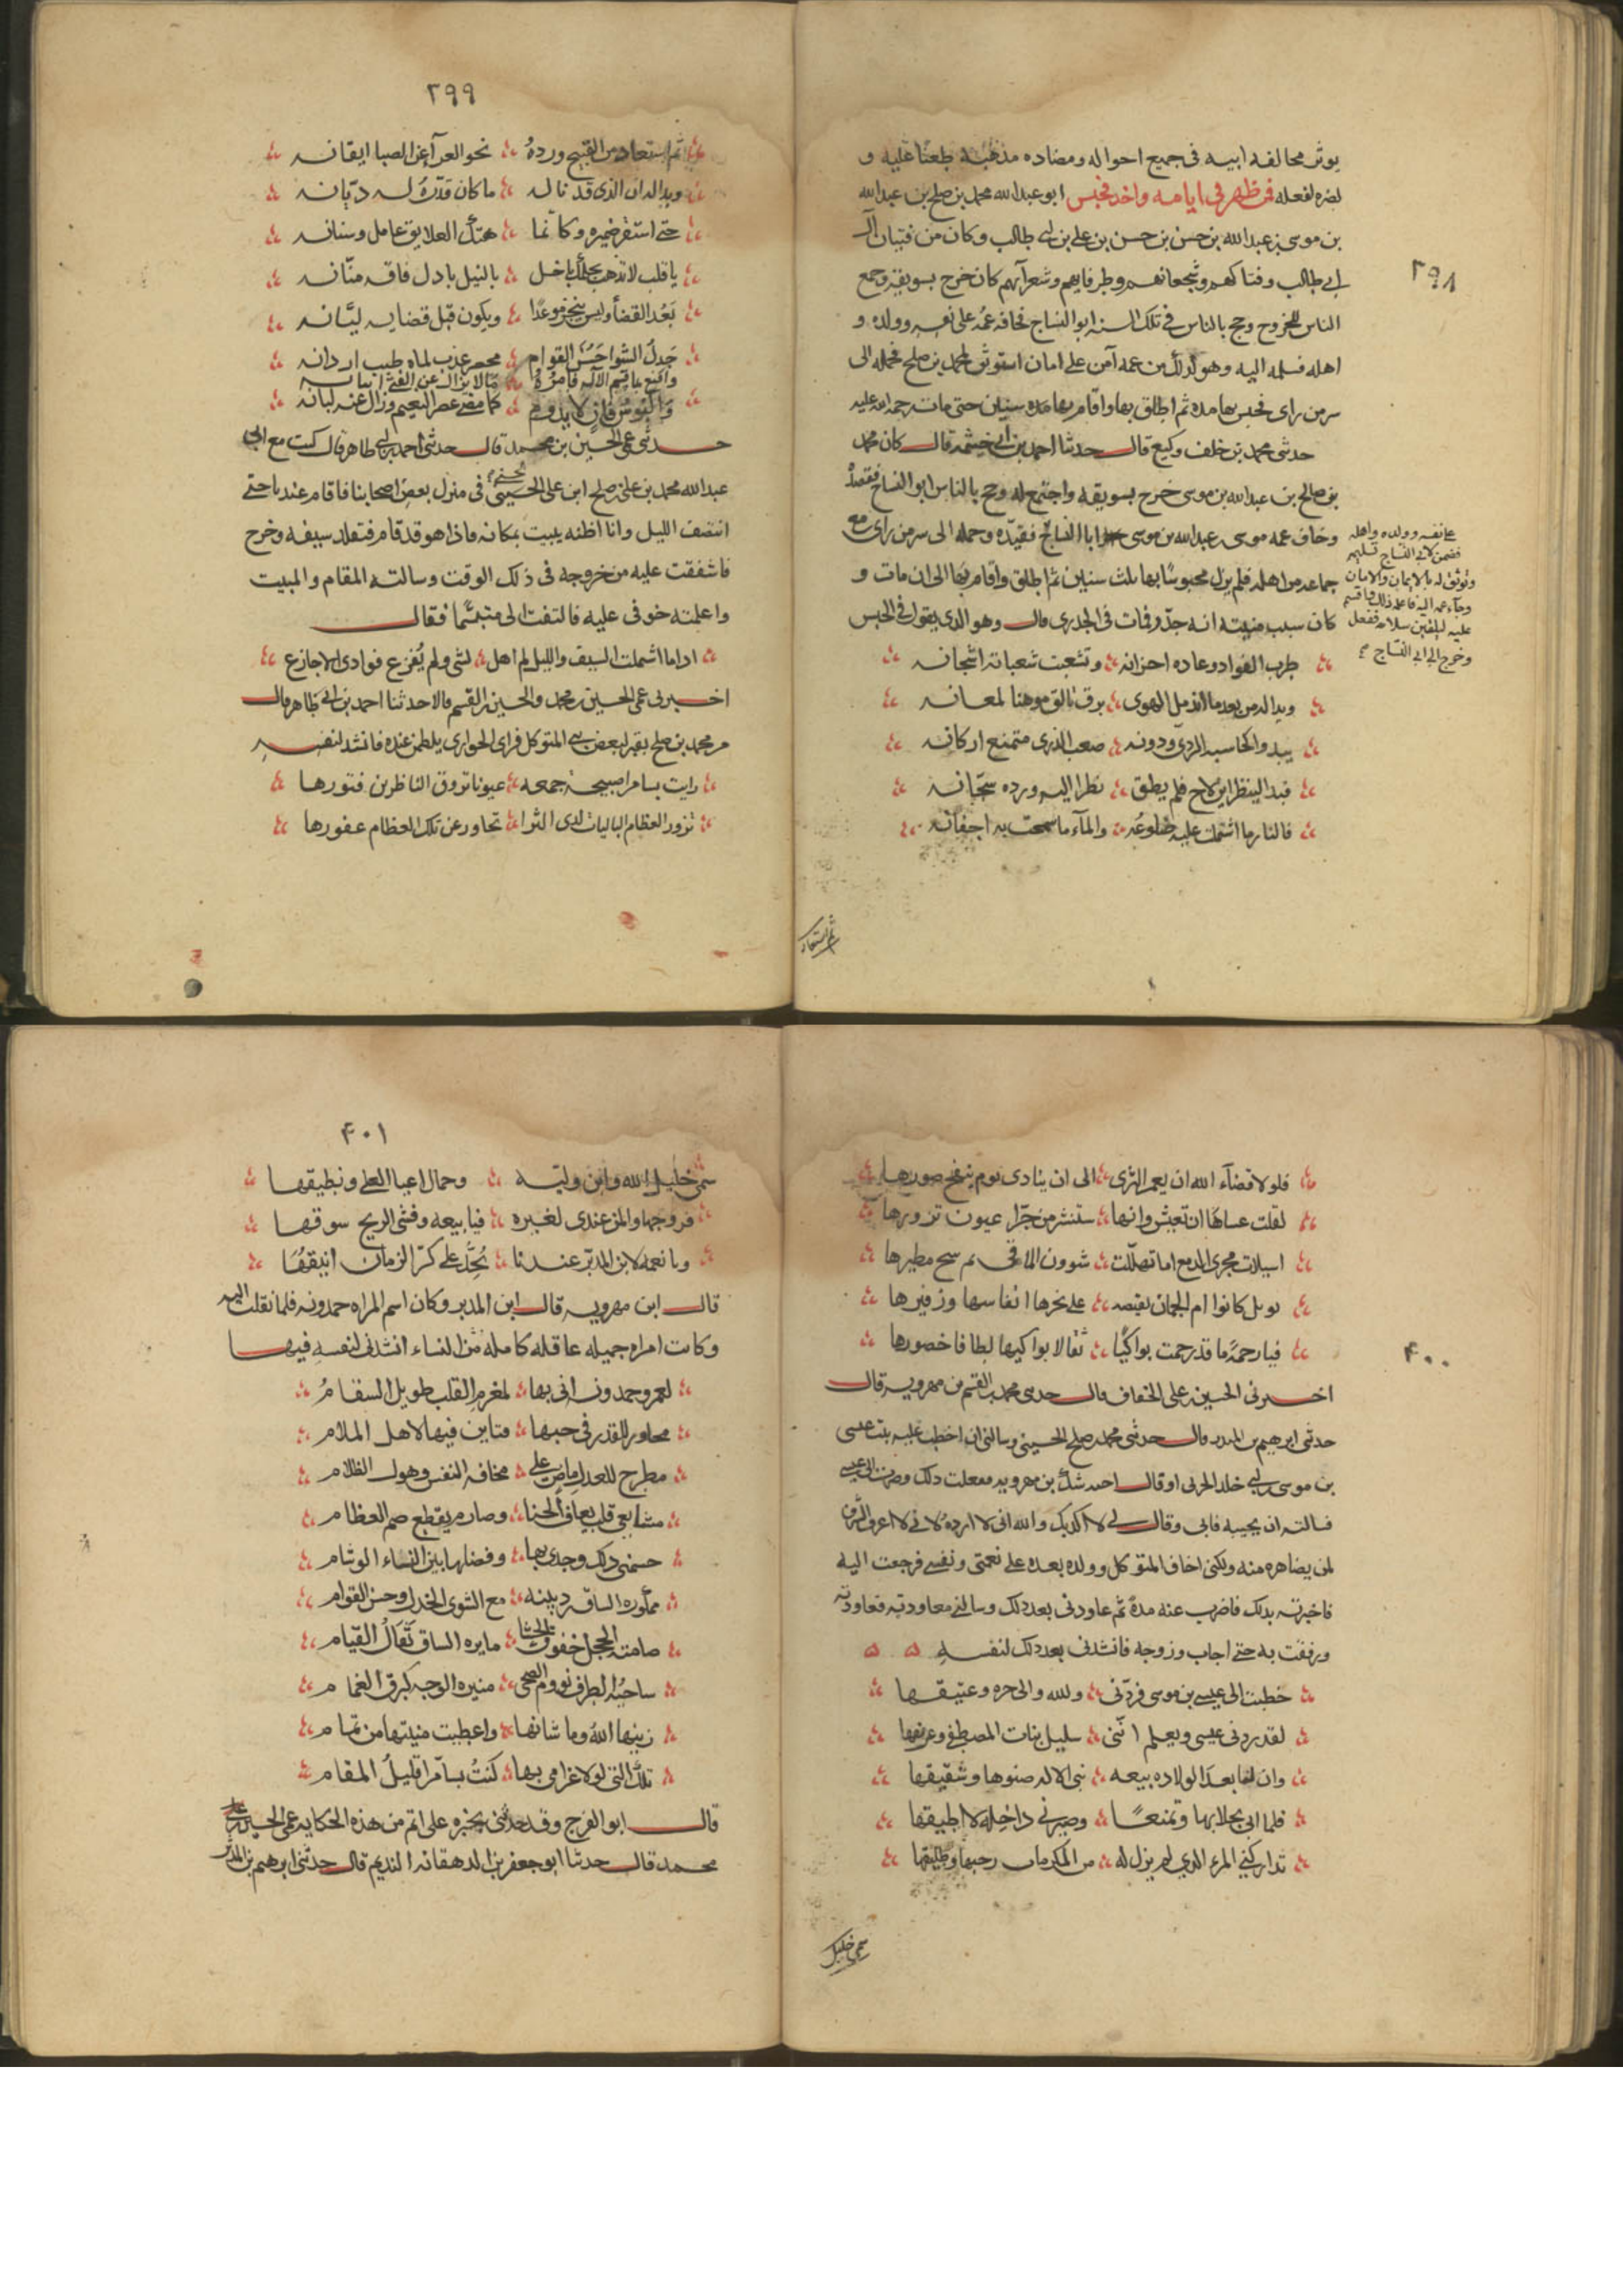 ٣٩٨
يوثر مخالفه ابيه فى جميع احواله ومضاده مذهبه طعنًا عليه و
نصره لفعله فمن ظهر فى ايامه واخذ فحبس ابو عبد الله محمد بن صلح بن عبد الله
بن موسى بن عبد الله بن حسن بن حسن بن على بن ابى طالب وكان من فتيان آل
ابى طالب وفتاكهم وشجعانهم وظرفايهم وشعرآيهم كان خرج بسويقه وجمع
الناس للخروج وحج بالناس فى تلك السنه ابو الساج فخافه عمه على نفسه وولده و
اهله فسلمه اليه وهو لذلك من عمه آمن على امان استوثق لمحمد بن صلح فحمله الى
سر من راى فحبس بها مده ثم اطلق بها واقام بها مده سنين حتى مات رحمه الله عليه
حدثنى محمد بن خلف وكيع قال حدثنا احمد بن ابى خيثمه قال كان محمد
بن صالح بن عبد الله بن موسى خرج بسويقه واجتمع له وحج بالناس ابو الساج فقصدهٌ
وخاف عمه موسى بن عبد الله بن موسى ابا الساج فقيده وحمله الى سر من راى مع
على نفسه وولده واهله
فضمن لابى الساج تسليمه
وتوثق له بالايمان والامان
وجآء عمه اليه فاعلمه ذلك واقسم
عليه ليلقين سلاحه ففعل
وخرج الى ابى الساج
جماعه من اهله فلم يزل محبوسًا بها ثلث سنين ثم اطلق واقام بها الى ان مات و
كان سبب منيته انه جدّر فمات فى الجدرى قال وهو الذى يقول فى الحبس
طرب الفواد وعاده احزانه وتشعبت شعبا به اشجانه
وبدا له من بعد ما اندمل الهوى برق تالق موهنا لمعانه
يبدو كحاشيه الردى ودونه صعب الذرى متمنع اركانه
فبدا لينظر اين لاح فلم يطق نظرا اليه ورده سجّانه
فالنار ما اشتملت عليه ضلوعه والمآء ما سمحت به اجفانه
ثم استعاد
٣٩٩
ثم استعاد من القبيح وردهُ نحو العرآء عن الصبا ايقانه
وبدا له ان الذى قد ناله ما كان قدّرهُ له ديّانه
حتى استقر ضميره وكانما هتك العلايق عامل وسنانه
يا قلب لا تذهب بحلمك باخل بالنيل باذل فاقه منّانه
يَعُد القضآ وليس ينجز موعدًا ويكون قبل قضايه ليّانه
خدل الشوا حَسَن القوام مخصر عذب لماه طيب اردانه
واقنع بما قسم الاله فامرهُ ما لا يزال عن الفتى اتيانه
والبوس فان لا يدوم كما مضى عصر النعيم وزال عنه لبانه
حدثنى عمى الحسين بن محمد قال حدثنى احمد بن ابى طاهر قال كنت مع ابى
عبد الله محمد بن على بن صلح ابن على الحسينى فى منزل بعض اصحابنا فاقام عندنا حتى
انتصف الليل وانا اظنه يبيت بمكانه فاذا هو قد قام فتقلد سيفه وخرج
فاشفقت عليه من خروجه فى ذلك الوقت وسالته المقام والمبيت
واعلمته خوفى عليه فالتفت الى متبسّما فقال
اذا ما اشتملت السيف والليل لم اهل لشى ولم يُفزع فوادى الاجازع
اخبرنى عمى الحسين بن محمد والحسين بن القسم قالا حدثنا احمد بن ابى طاهر قال
مر محمد بن صلح بقبر لبعض بنى المتوكل فراى الجوارى يلطمن عنده فانشد لنفسه
رايت بسامرا صبيحه جمعه عيونا تروق الناظرين فتورها
تزور العظام الباليات لدى الثرا تجاوز عن تلك العظام غفورها
٤٠٠
فلولا قضآء الله ان يعمر الثرى الى ان ينادى يوم ينفخ صورها
لقلت عساها ان تعيش وانها ستنشر من جرّا عيون تزورها
اسيلات مجرى الدمع اما تهللت شوون المآقى ثم سح مطيرها
بوبل كانوام الجمان بفيضه على نحرها انفاسها وزفيرها
فيا رحمةً ما قد رحمت بواكيًا ثقالا بواكيها لطافا خصورها
اخبرنى الحسين بن على الخفاف قال حدثنى محمد بن القسم بن مهرويه قال
حدثنى ابرهيم بن المدبر قال حدثنى محمد بن صلح الحسينى وسالنى ان اخطب عليه بنت عيسى
بن موسى بن ابى خلد الحربى او قال احمد شك بن مهرويه ففعلت ذلك وصرت الى عيسى
فسالته ان يجيبه فابى وقال لى لا اكذبك والله انى لا ارده لانى لا اعرف اشرف
لمن يصاهره منه ولكنى اخاف المتوكل وولده بعده على نعمتى ونفسى فرجعت اليه
فاخبرته بذلك فاضرب عنه مدة ثم عاودنى بعد ذلك وسالنى معاودته فعاودته
ورفقت به حتى اجاب وزوجه فانشدنى بعد ذلك لنفسه
خطبت الى عيسى بن موسى فردّنى ولله والى حره وعتيقها
لقد ردنى عيسى ويعلم انّنى سليل بنات المصطفى وعريقها
وان لنا بعد الولاده بيعه نبى الاله صنوها وشقيقها
فلما ابى بخلا بها وتمنعًا وصيرنى ذا خله لا اطيقها
تداركنى المرء الذى لم يزل له من المكرمات رحبها وطليقها
سمى خليل
٤٠١
سمى خليل الله وابن وليه وحمال اعبا العلى ونطيقها
فزوجها والمن عندى لغيره فيا بيعه وفتنى الريح سوقها
ويا نعمه لابن المدبّر عندنا يُجِدُّ على كرّ الزمان انيقها
قال ابن مهرويه قال ابن المدبر وكان اسم المراه حمدونه فلما نقلت اليه
وكانت امراه جميله عاقله كامله من النساء انشدنى لنفسه فيها
لعمر حمدونه انى بها لمغرم القلب طويل السقامُ
مجاوز للقدر فى حبها مباين فيها لاهل الملام
مطرح للعذل ماض على مخافه النفس وهول الظلام
مشايعى قلب يعاف الخنا وصارم يقطع صم العظام
جشمنى ذلك وجدى بها وفضلها بين النساء الوشام
ممكوره الساق ردينيه مع الشوى الخدل وحسن القوام
صامته الحجل خفوق الحشا مايره الساق ثَقالُ القيام
ساجيُه الطرف نووم الضحى منيره الوجه كبرق الغمام
زينها اللهُ وما شانها واعطيت منيتها من تمام
تلك التى لولا غرامى بها كنتُ بسآمرا قليلُ المقام
قال ابو الفرج وقد حدثنى بخبره على اتم من هذه الحكايه عمى الحسين بن
محمد قال حدثنا ابو جعفر بن الدهقانه النديم قال حدثنى ابرهيم بن المدبر